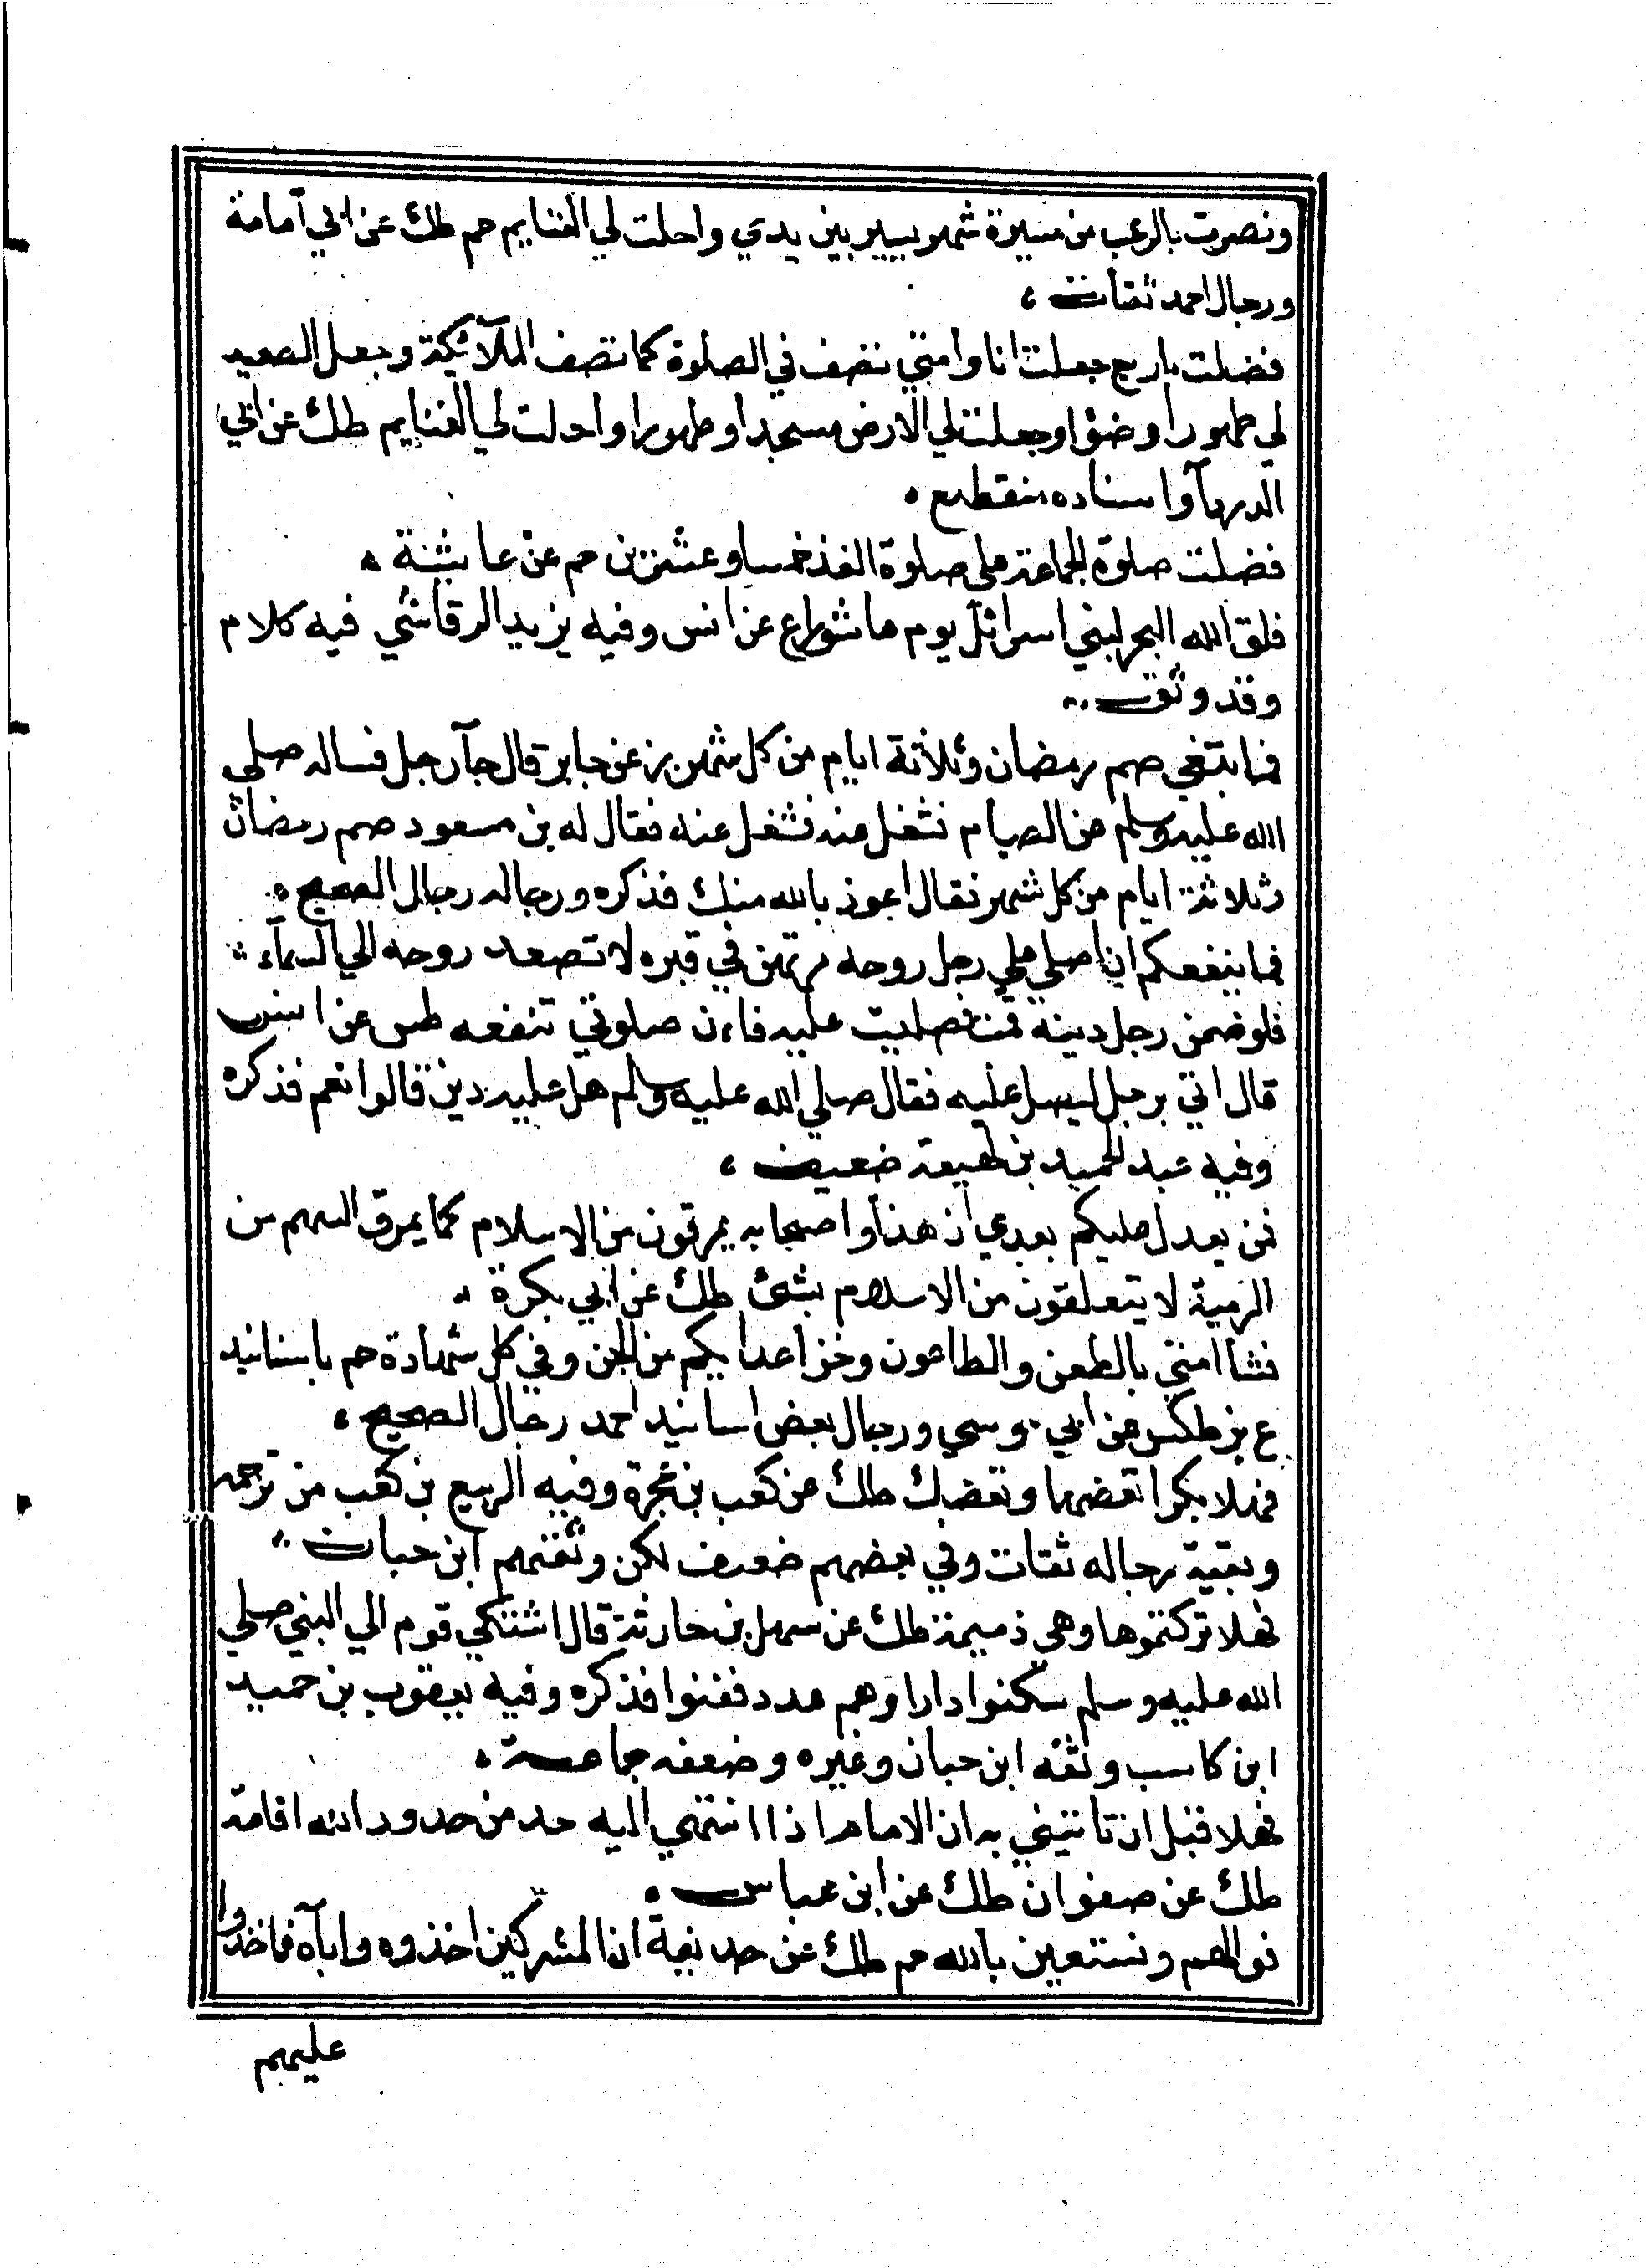 ونصرت بالرعب من مسيرة شهر يسير بين يدي واحلت لي الغنايم حم طك عن ابي أمامة
ورجال احمد ثقات ،
فضلت باربع جعلت انا وامتي نصف في الصلوة كما تصف الملآئكة وجعل الصعيد
لي طهورا وضؤا وجعلت لي الارض مسجدا وطهورا واحلت لي الغنايم طك عن ابي
الدردآ واسناده منقطع ،
فضلت صلوة الجماعة علي صلوة الفذ خمسا وعشرين حم عن عايشة ،
فلق الله البحر لبني اسرائل يوم عاشورا ع عن انس وفيه يزيد الرقاشي فيه كلام
وقد وثق ..
فما بتغي صم رمضان وثلاثة ايام من كل شهر بز عن جابر قال جآ رجل فساله صلي
الله عليه وسلم عن الصيام فشغل عنه فشغل عنه فقال له بن مسعود صم رمضان
وثلاثة ايام من كل شهر فقال اعوذ بالله منك فذكره ورجاله رجال الصحيح ،
فما ينفعكم ان اصلي علي رجل روحه مرتهن في قبره لا تصعد روحه الي السمآء ،
فلو ضمن رجل دينه قمت فصليت عليه فاءن صلوتي تنفعه طس عن انس
قال اتي برجل ليصل عليه فقال صلي الله عليه وسلم هل عليه دين قالوا نعم فذكره
وفيه عبد الحميد بن لهيعة ضعيف ،
فمن يعدل عليكم بعدي ان هذا واصحابه يمرقون من الاسلام كما يمرق السهم من
الرمية لا يتعلقون من الاسلام بشئ طك عن ابي بكرة ..
فشأ امتي بالطعن والطاعون وخز اعدايكم من الجن وفي كل شهادة حم باسانيد
ع بز طكس عن ابي موسي ورجال بعض اسانيد احمد رجال الصحيح ،
فهلا بكرا تعضها وتعضك طك عن كعب بن عجرة وفيه الربيع بن كعب من ترجمه
وبقية رجاله ثقات وفي بعضهم ضعف لكن وثقهم ابن حبان ..
فهلا تركتموها وهي ذميمة طك عن سهل بن حارثة قال اشتكي قوم الي النبي صلي
الله عليه وسلم سكنوا دارا وهم عدد ففنوا فذكره وفيه يعقوب بن حميد
ابن كاسب وثقه ابن حبان وغيره وضعفه جماعة ،
فهلا قبل ان تاتيني به ان الامام اذا انتهي اليه حد من حدود الله اقامة
طك عن صفوان طك عن ابن عباس ،
فوالهم ونستعين بالله حم طك عن حديفة ان المشركين اخذوه واباه فاخذوا
عليهم